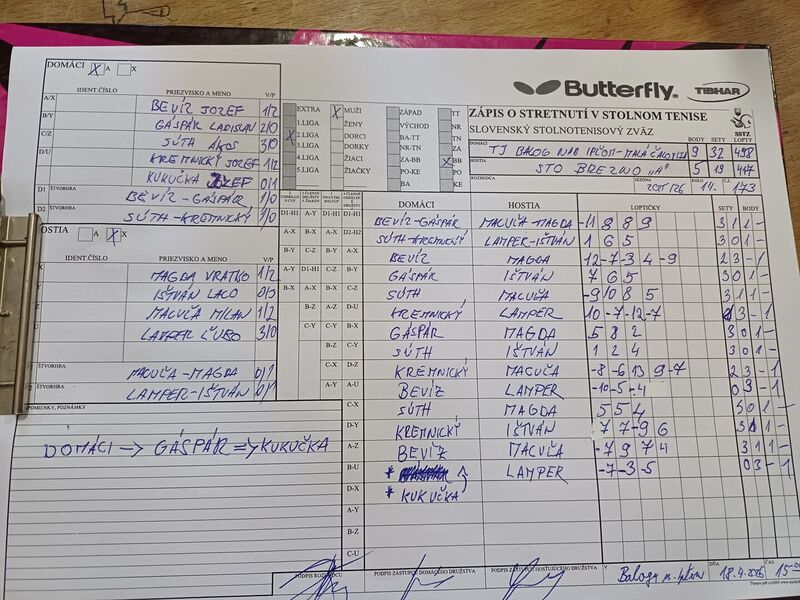 DOMÁCI X A X
IDENT.ČÍSLO PRIEZVISKO A MENO V/P
A/X BEVÍZ JOZEF 1/2
B/Y GÁSPÁR LADISLAV 2/0
C/Z SÚTH ÁKOS 3/0
D/U KREMNICKÝ JOZEF 1/2
KUKUČKA JOZEF 0/1
D1 ŠTVORHRA BEVÍZ - GÁSPÁR 1/0
D2 ŠTVORHRA SÚTH - KREMNICKÝ 1/0
HOSTIA A X X
IDENT.ČÍSLO PRIEZVISKO A MENO V/P
MAGDA VRATKO 1/2
IŠTVÁN LACO 0/3
MACUĽA MILAN 1/2
LAMPER ĽUBO 3/0
ŠTVORHRA MACUĽA - MAGDA 0/1
ŠTVORHRA LAMPER - IŠTVÁN 0/1
PRIPOMIENKY, POZNÁMKY
DOMÁCI → GÁSPÁR => KUKUČKA
EXTRA X MUŽI ZÁPAD TT
1.LIGA ŽENY VÝCHOD NR
X 2.LIGA DORCI BA-TT TN
3.LIGA DORKY NR-TN ZA
4.LIGA ŽIACI ZA-BB X BB
5.LIGA ŽIAČKY PO-KE PO
BA KE
Butterfly TIBHAR
ZÁPIS O STRETNUTÍ V STOLNOM TENISE
SLOVENSKÝ STOLNOTENISOVÝ ZVÄZ
SSTZ
BODY SETY LOPTY
DOMÁCI TJ BALOG NAD IPĽOM - MALÁ ČALOMIJA 9 32 498
HOSTIA STO BREZNO "A" 5 19 417
ROZHODCA SEZÓNA 2025/26 KOLO 14. Č. 173
DOMÁCI HOSTIA LOPTIČKY SETY BODY
BEVÍZ-GÁSPÁR MACUĽA-MAGDA -11 8 8 9 3 1 1 -
SÚTH-KREMNICKÝ LAMPER-IŠTVÁN 1 6 5 3 0 1 -
BEVÍZ MAGDA 12 -7 -3 4 -9 2 3 - 1
GÁSPÁR IŠTVÁN 7 6 5 3 0 1 -
SÚTH MACUĽA -9 10 8 5 3 1 1 -
KREMNICKÝ LAMPER 10 -7 -12 -7 1 3 - 1
GÁSPÁR MAGDA 5 8 2 3 0 1 -
SÚTH IŠTVÁN 1 2 4 3 0 1 -
KREMNICKÝ MACUĽA -8 -6 13 9 -7 2 3 - 1
BEVÍZ LAMPER -10 -5 -4 0 3 - 1
SÚTH MAGDA 5 5 4 3 0 1 -
KREMNICKÝ IŠTVÁN 7 7 -9 6 3 1 1 -
BEVÍZ MACUĽA -7 9 7 4 3 1 1 -
* LAMPER -7 -3 -5 0 3 - 1
* KUKUČKA
PODPIS ROZHODCU PODPIS ZÁSTUPCU DOMÁCEHO DRUŽSTVA PODPIS ZÁSTUPCU HOSŤUJÚCEHO DRUŽSTVA V Balogu n. Ipľom DŇA 18.4.2026